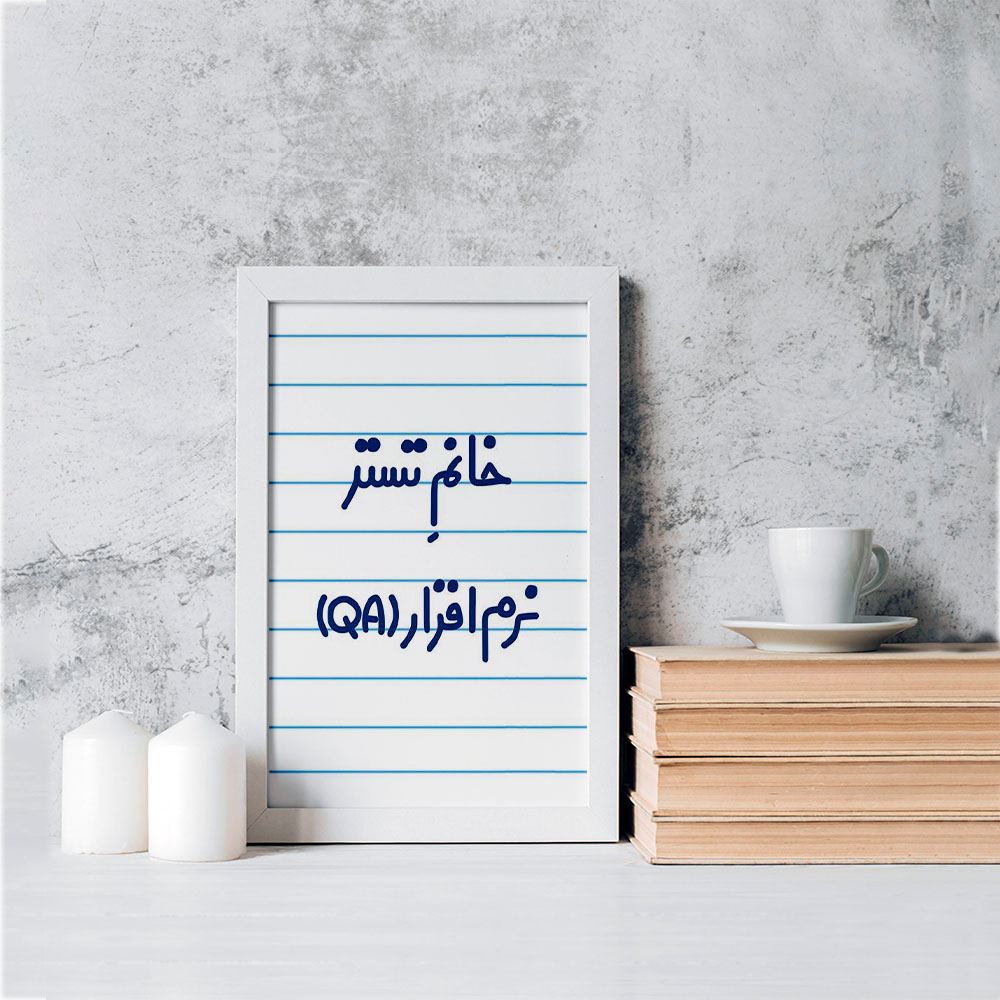 خانمِ تستر
نرم افزار (QA)